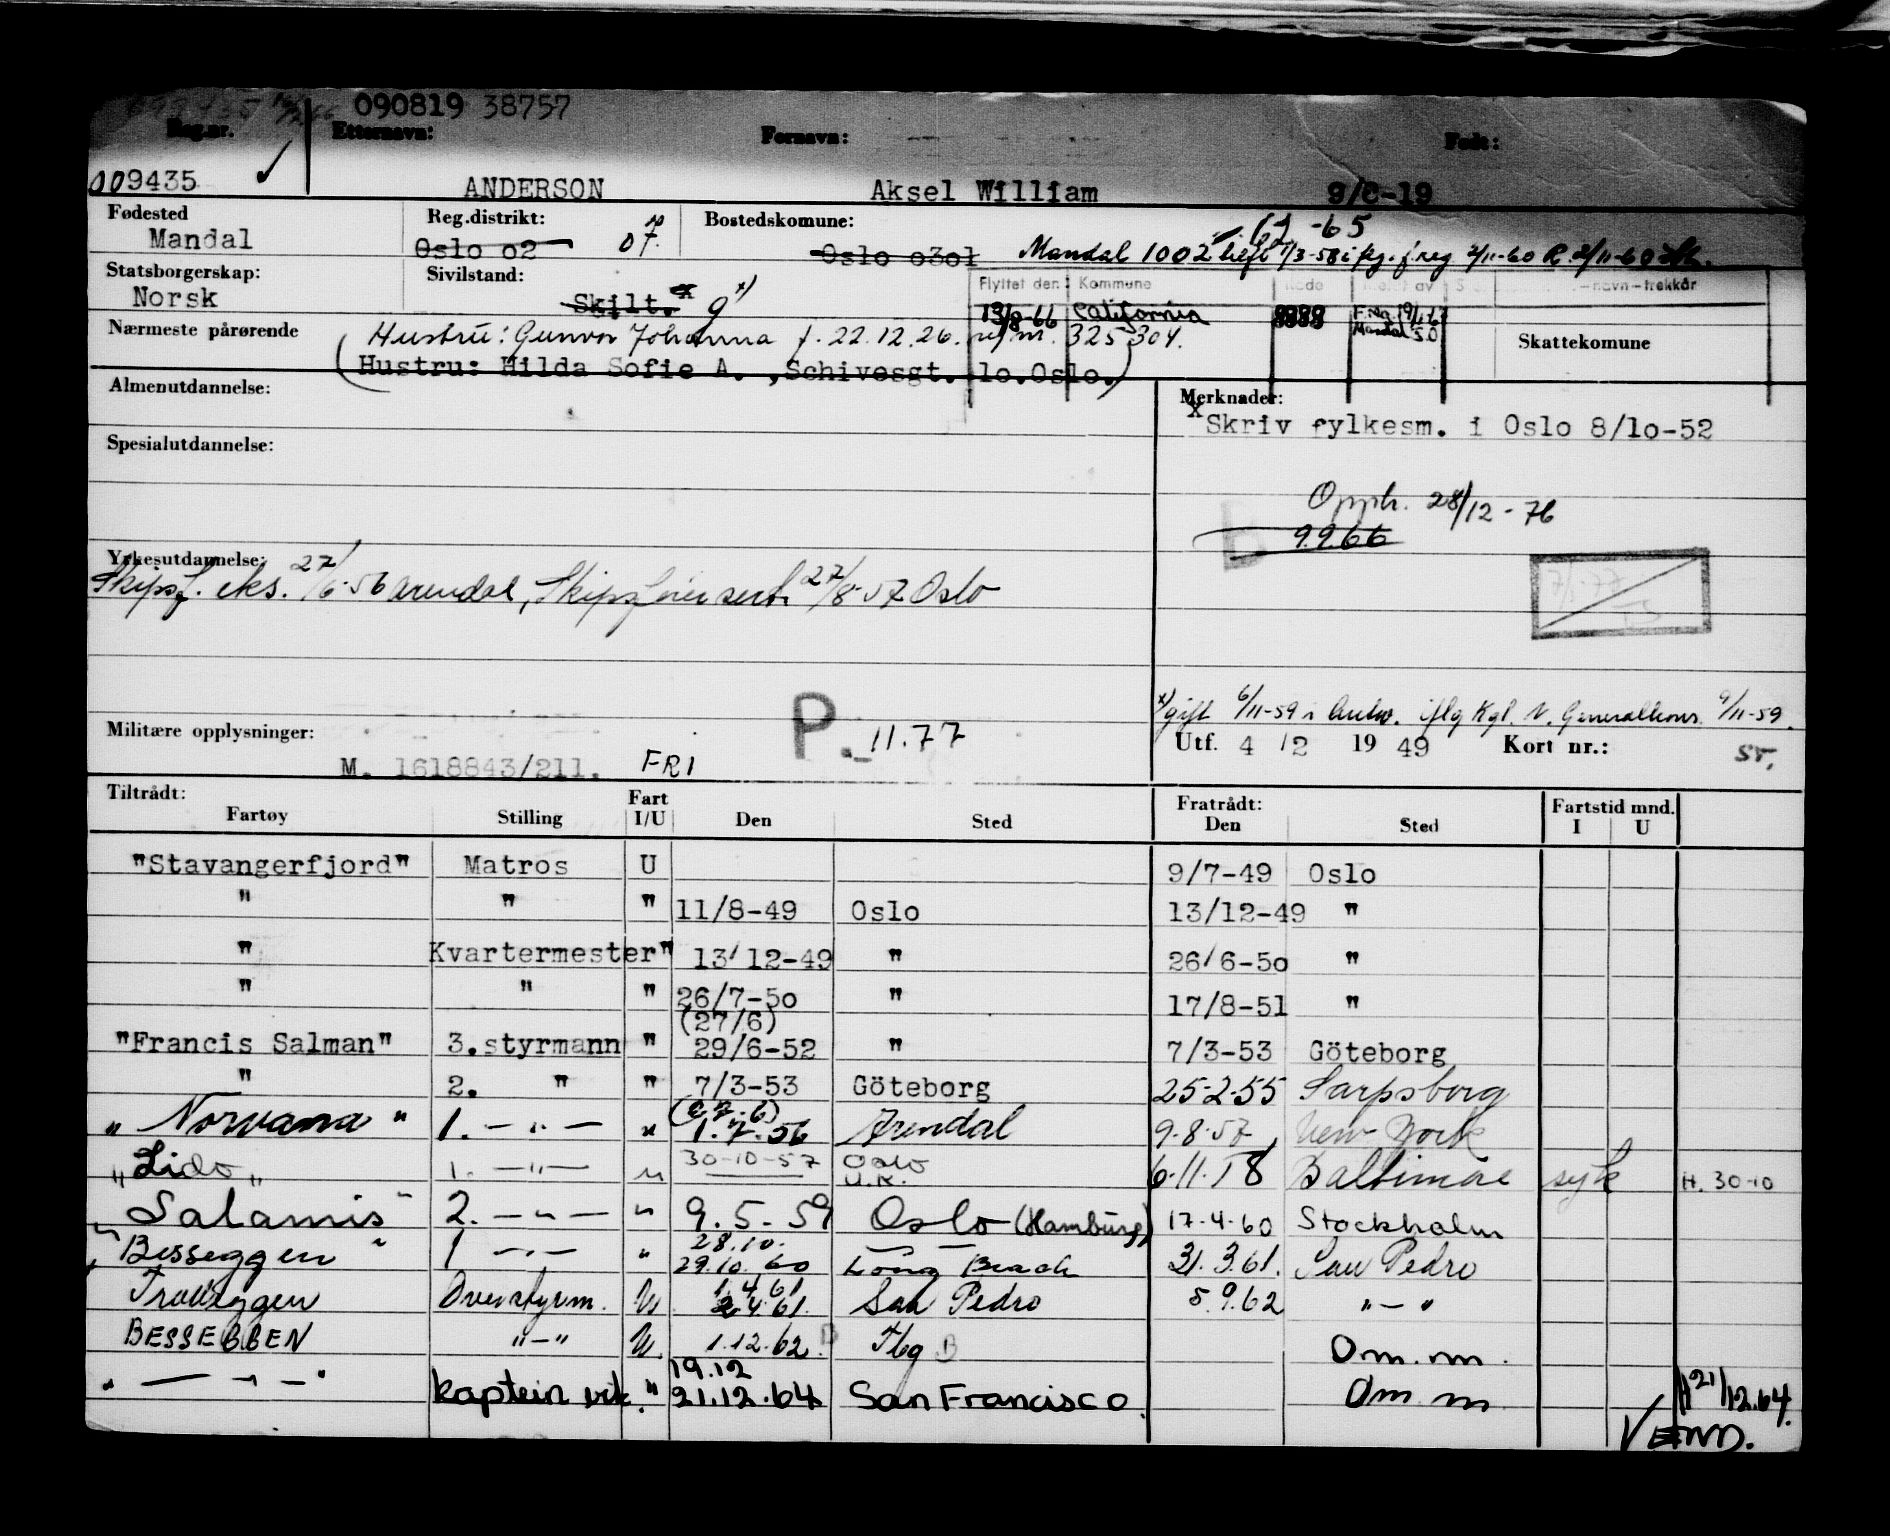 090819 38757
Reg.nr. Etternavn: Fornavn: Født:
009435 ✓ ANDERSON Aksel William 9/8-19
Fødested Reg.distrikt: Bostedskomune:
Mandal Oslo 02 07. Oslo 0301 Mandal 1002
Statsborgerskap: Sivilstand: Flyttet den: Kommune
Norsk Skilt. x g x)
13/8-66 California 9999 Mandal S.O
Nærmeste pårørende Hustru: Gunvor Johanna f. 22.12.26. ref.nr. 325304. Skattekomune
(Hustru: Hilda Sofie A. ,Schivesgt. 10.Oslo.)
Almenutdannelse: Merknader:
x Skriv fylkesm. i Oslo 8/10-52
Spesialutdannelse:
Opph. 28/12-76
9.9.66
Yrkesutdannelse:
Skipsf. eks. 27/6-56 Arendal, Skipsfører sert. 27/8-57 Oslo
x) gift 6/11-59 i Antw. iflg Kgl. N. Generalkons. 9/11-59.
Militære opplysninger: P. 11.77 Utf. 4 /2 19 49 Kort nr.:
M. 1618843/211. FRI
Tiltrådt: Fart Fratrådt: Fartstid mnd.
Fartøy Stilling I/U Den Sted Den Sted I U
"Stavangerfjord" Matros U 9/7-49 Oslo
" " " 11/8-49 Oslo 13/12-49 "
" Kvartermester " 13/12-49 " 26/6-50 "
" " " 26/7-50 " 17/8-51 "
(27/6)
"Francis Salman" 3.styrmann " 29/6-52 " 7/3-53 Göteborg
" 2. " " 7/3-53 Göteborg 25-2-55 Sarpsborg
(27.6)
"Norvana" 1. -"- " 1.7.56 Arendal 9.8.57 New York
"Lido" 1. -"- " 30-10-57 Oslo 6.11.58 Baltimore syk H. 30-10
U.K.
"Salamis" 2. -"- " 9.5.59 Oslo (Hamburg) 17.4.60 Stockholm
28.10.
"Besseggen" 1 -"- " 29.10.60 Long Beach 31.3.61. San Pedro
1.4.61
Trolleggen Overstyrm. U 2.4.61. San Pedro 5.9.62 "-"
BESSEGGEN "-" U. 1.12.62 Tbg Om.m.
19.12
"-"-" kaptein vik. " 21.12.64 San Francisco. Om.m H 21/12.64.
VEND.